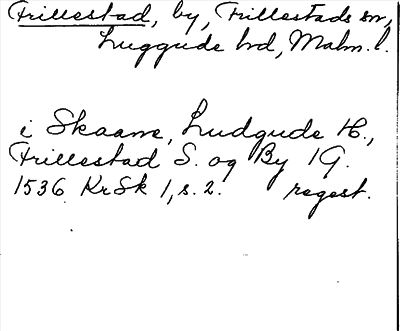 Frillestad, by, Frillestads sn,
Luggude hd, Malm. l.
i Skaane, Ludgude H.,
Frillestad S. og By 1 G.
1536 KrSk 1, s. 2. regest.